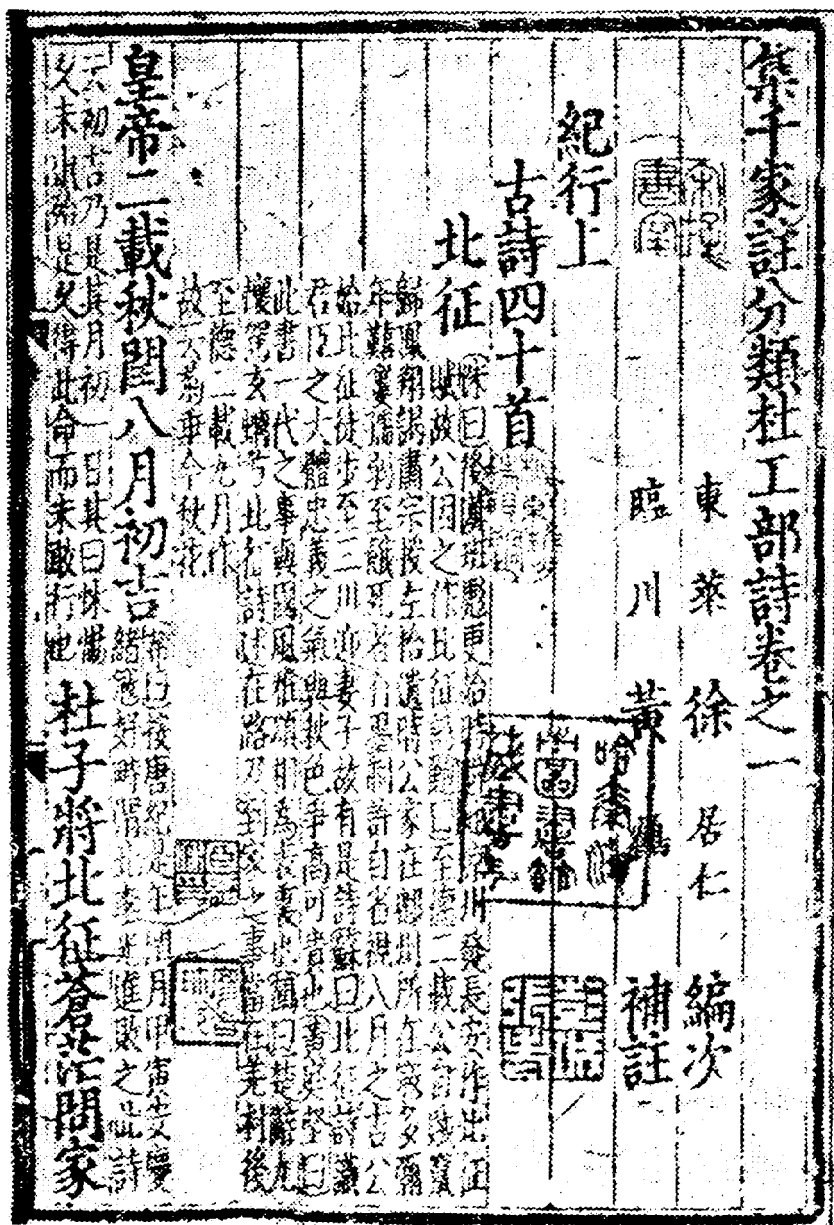 集千家註分類杜工部詩卷之一
東萊 徐 居仁 編次
臨川 黃 鶴 補註
紀行上
古詩四十首
北征
洙曰後漢班彪更始時 川發長安作北征
賦故公因之作北征詩 至德二載公自賊竄
歸鳳翔謁肅宗授左拾遺時公家在鄜州所在寇多彌
年艱窶孺弱至餓死者有墨制許自省視八月之吉公
始北征徒步至三川迎妻子故有是詩蘇曰北征詩識
君臣之大體忠義之氣與秋色爭高可貴也黃庭堅曰
此書一代之事與國風雅頌相為表裏 鶴曰楚辭九
懷駕玄螭兮北征詩述在路及到家之事當在羌村後
至德二載九月作
故云菊垂今秋花
皇帝二載秋閏八月初吉
曰後唐紀是年閏月甲寅安慶
緒寇好畤渭北 進敗之此詩
云初吉乃是其月初一日其曰怵惕
又未 是久得此命而未敢行也
杜子將北征蒼茫問家